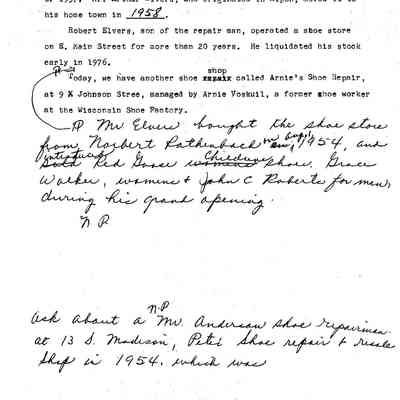 his home town in 1958.
Robert Elvers, son of the repair man, operated a shoe store
on S. Main Street for more than 20 years. He liquidated his stock
early in 1976.
shop
Today, we have another shoe repair called Arnie's Shoe Repair,
at 9 X Johnson Stree, managed by Arnie Voskuil, a former shoe worker
at the Wisconsin Shoe Factory.
Mr Elvers bought the shoe store
from Norbert Rathenbach in 1954, and
introduced Red Goose womens Childrens shoe. Grace
Walker, womens & John C Roberts for men,
during his grand opening.
N P
N.P
Ask about a Mr. Anderson shoe repairman
at 13 S. Madison, Pete's shoe repair & resale
Shop in 1954. which was